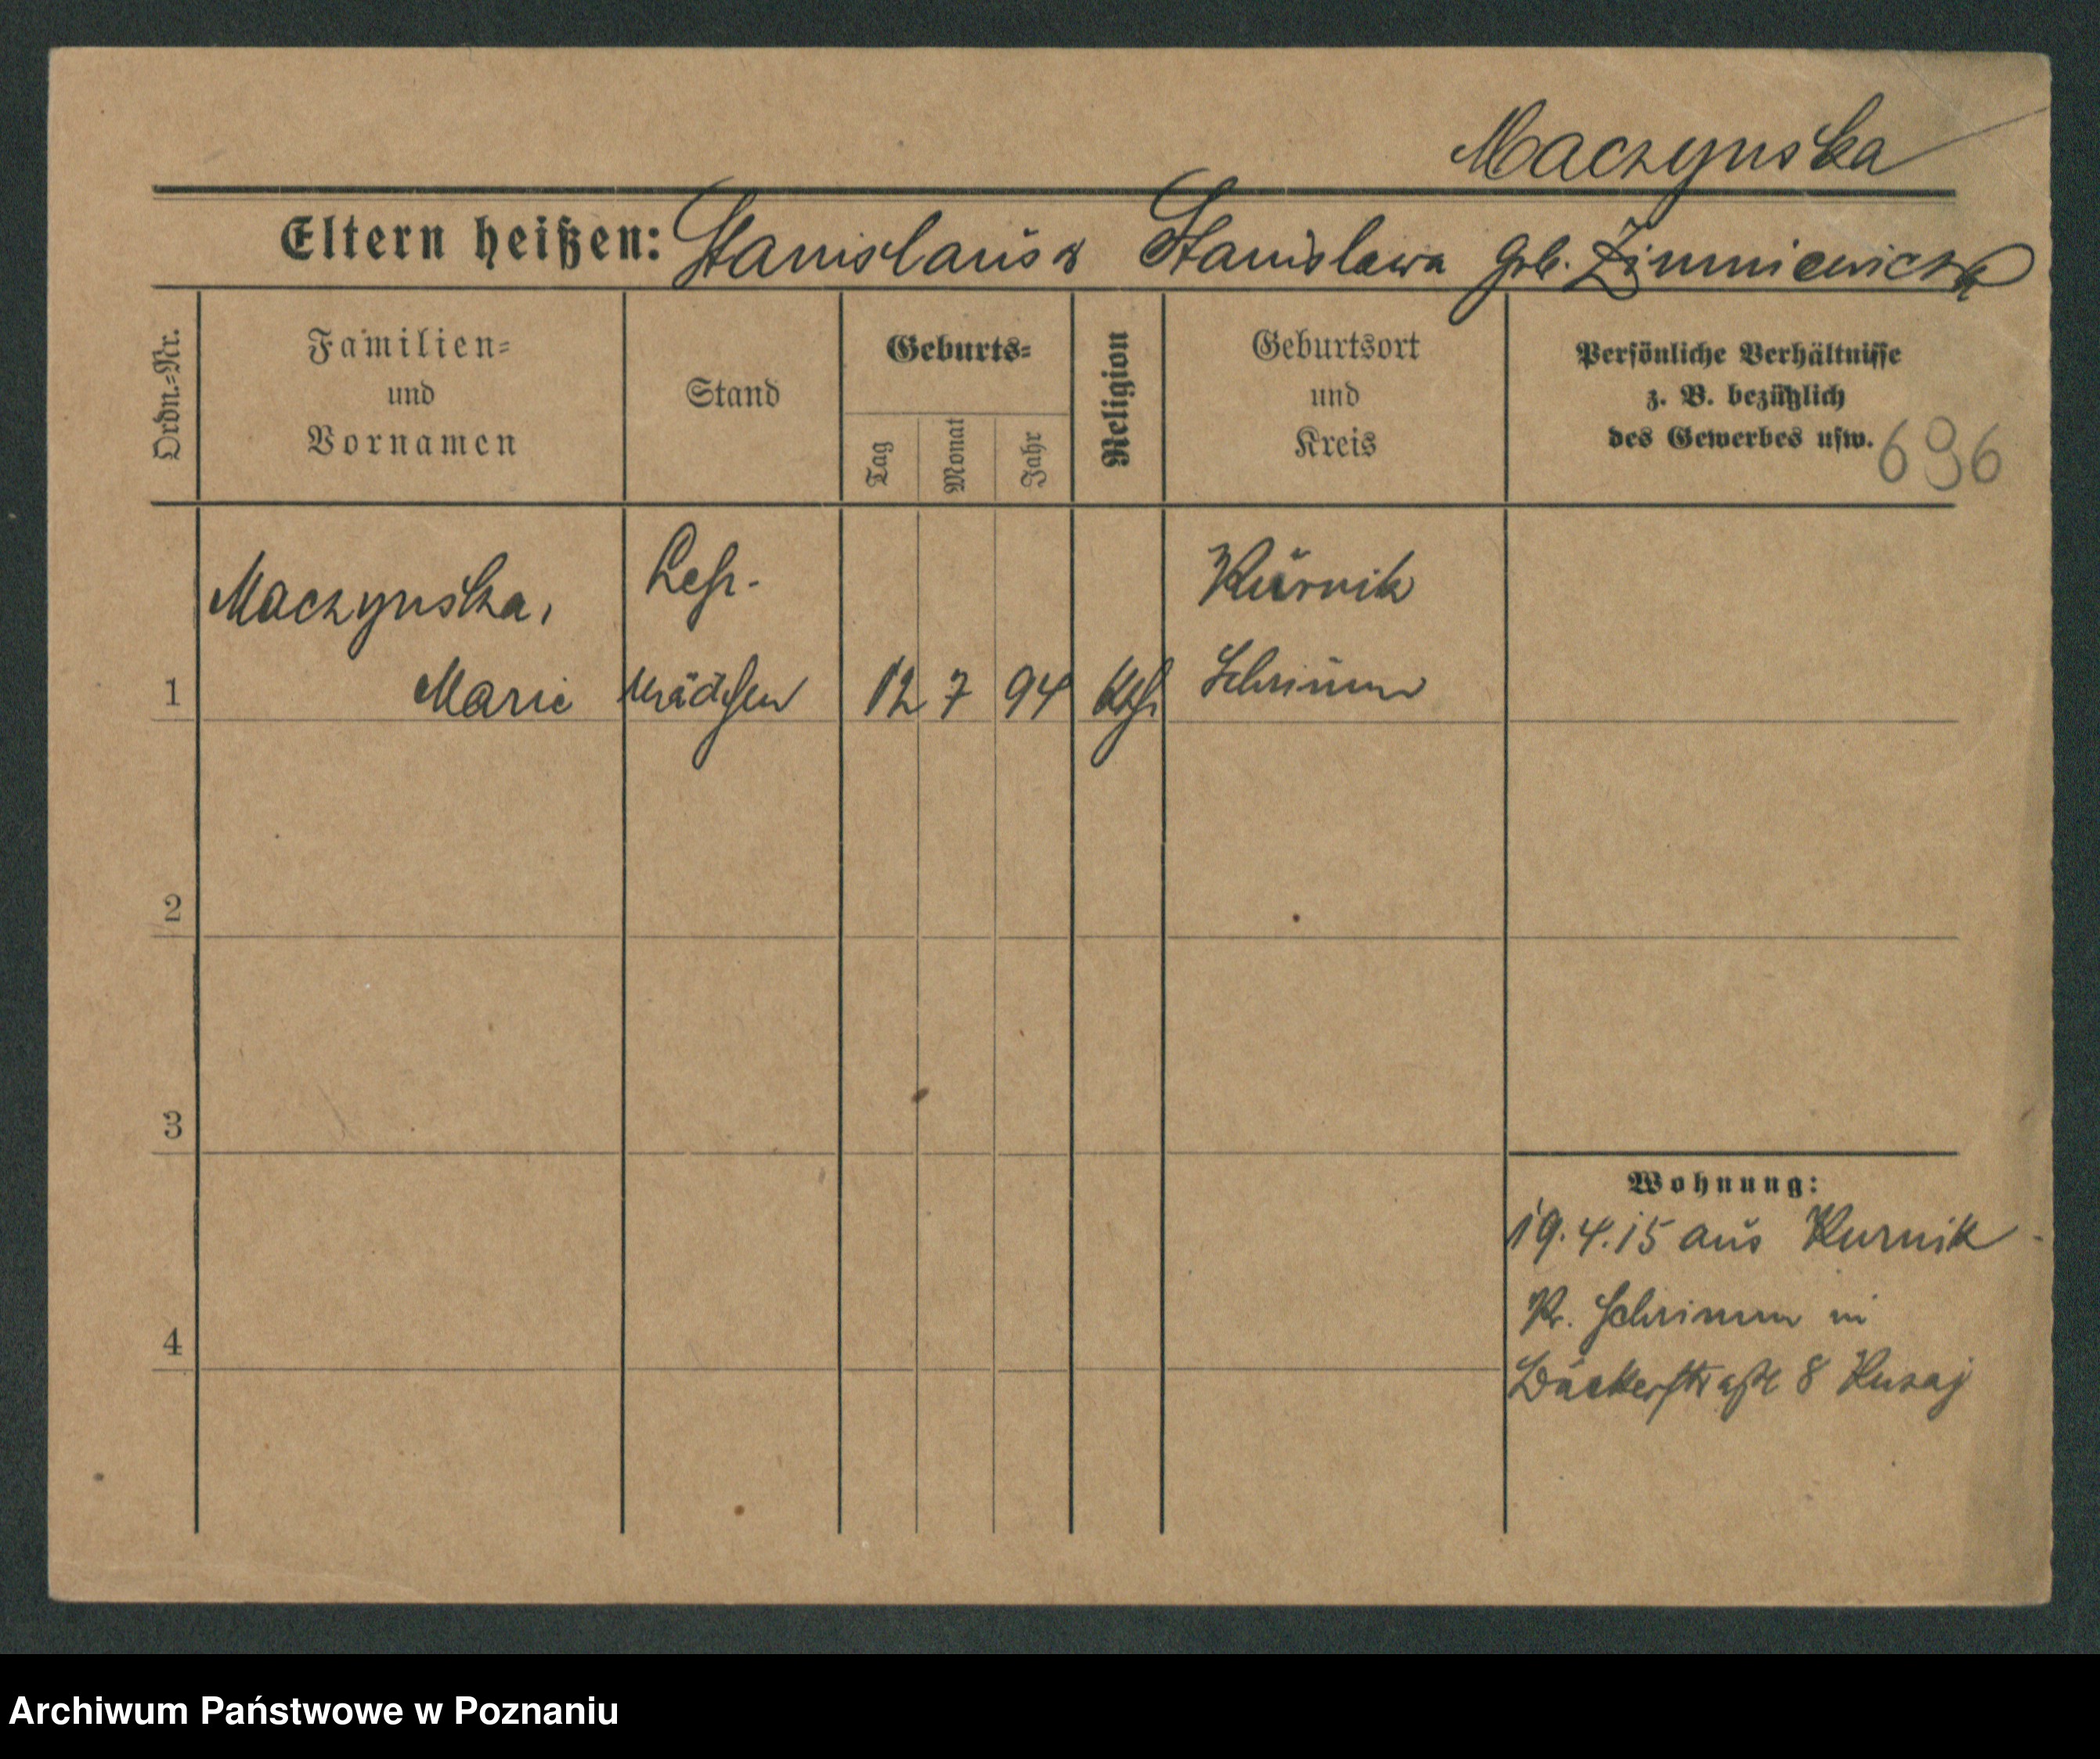 Maczynska
Eltern heißen: Stanislaus & Stanislawa geb. Zimniewicz
Ordn.-Nr.
Familien-
und
Vornamen
Stand
Geburts-
Tag
Monat
Jahr
Religion
Geburtsort
und
Kreis
Persönliche Verhältnisse
z. B. bezüglich
des Gewerbes usw.
696
Maczynska,
Marie
Lehr-
mädchen
12 7 94
kth
Kurnik
Schrimm
1
2
3
4
Wohnung:
19.4.15 aus Kurnik
Kr. Schrimm in
Bäckerstraße 8
Archiwum Państwowe w Poznaniu